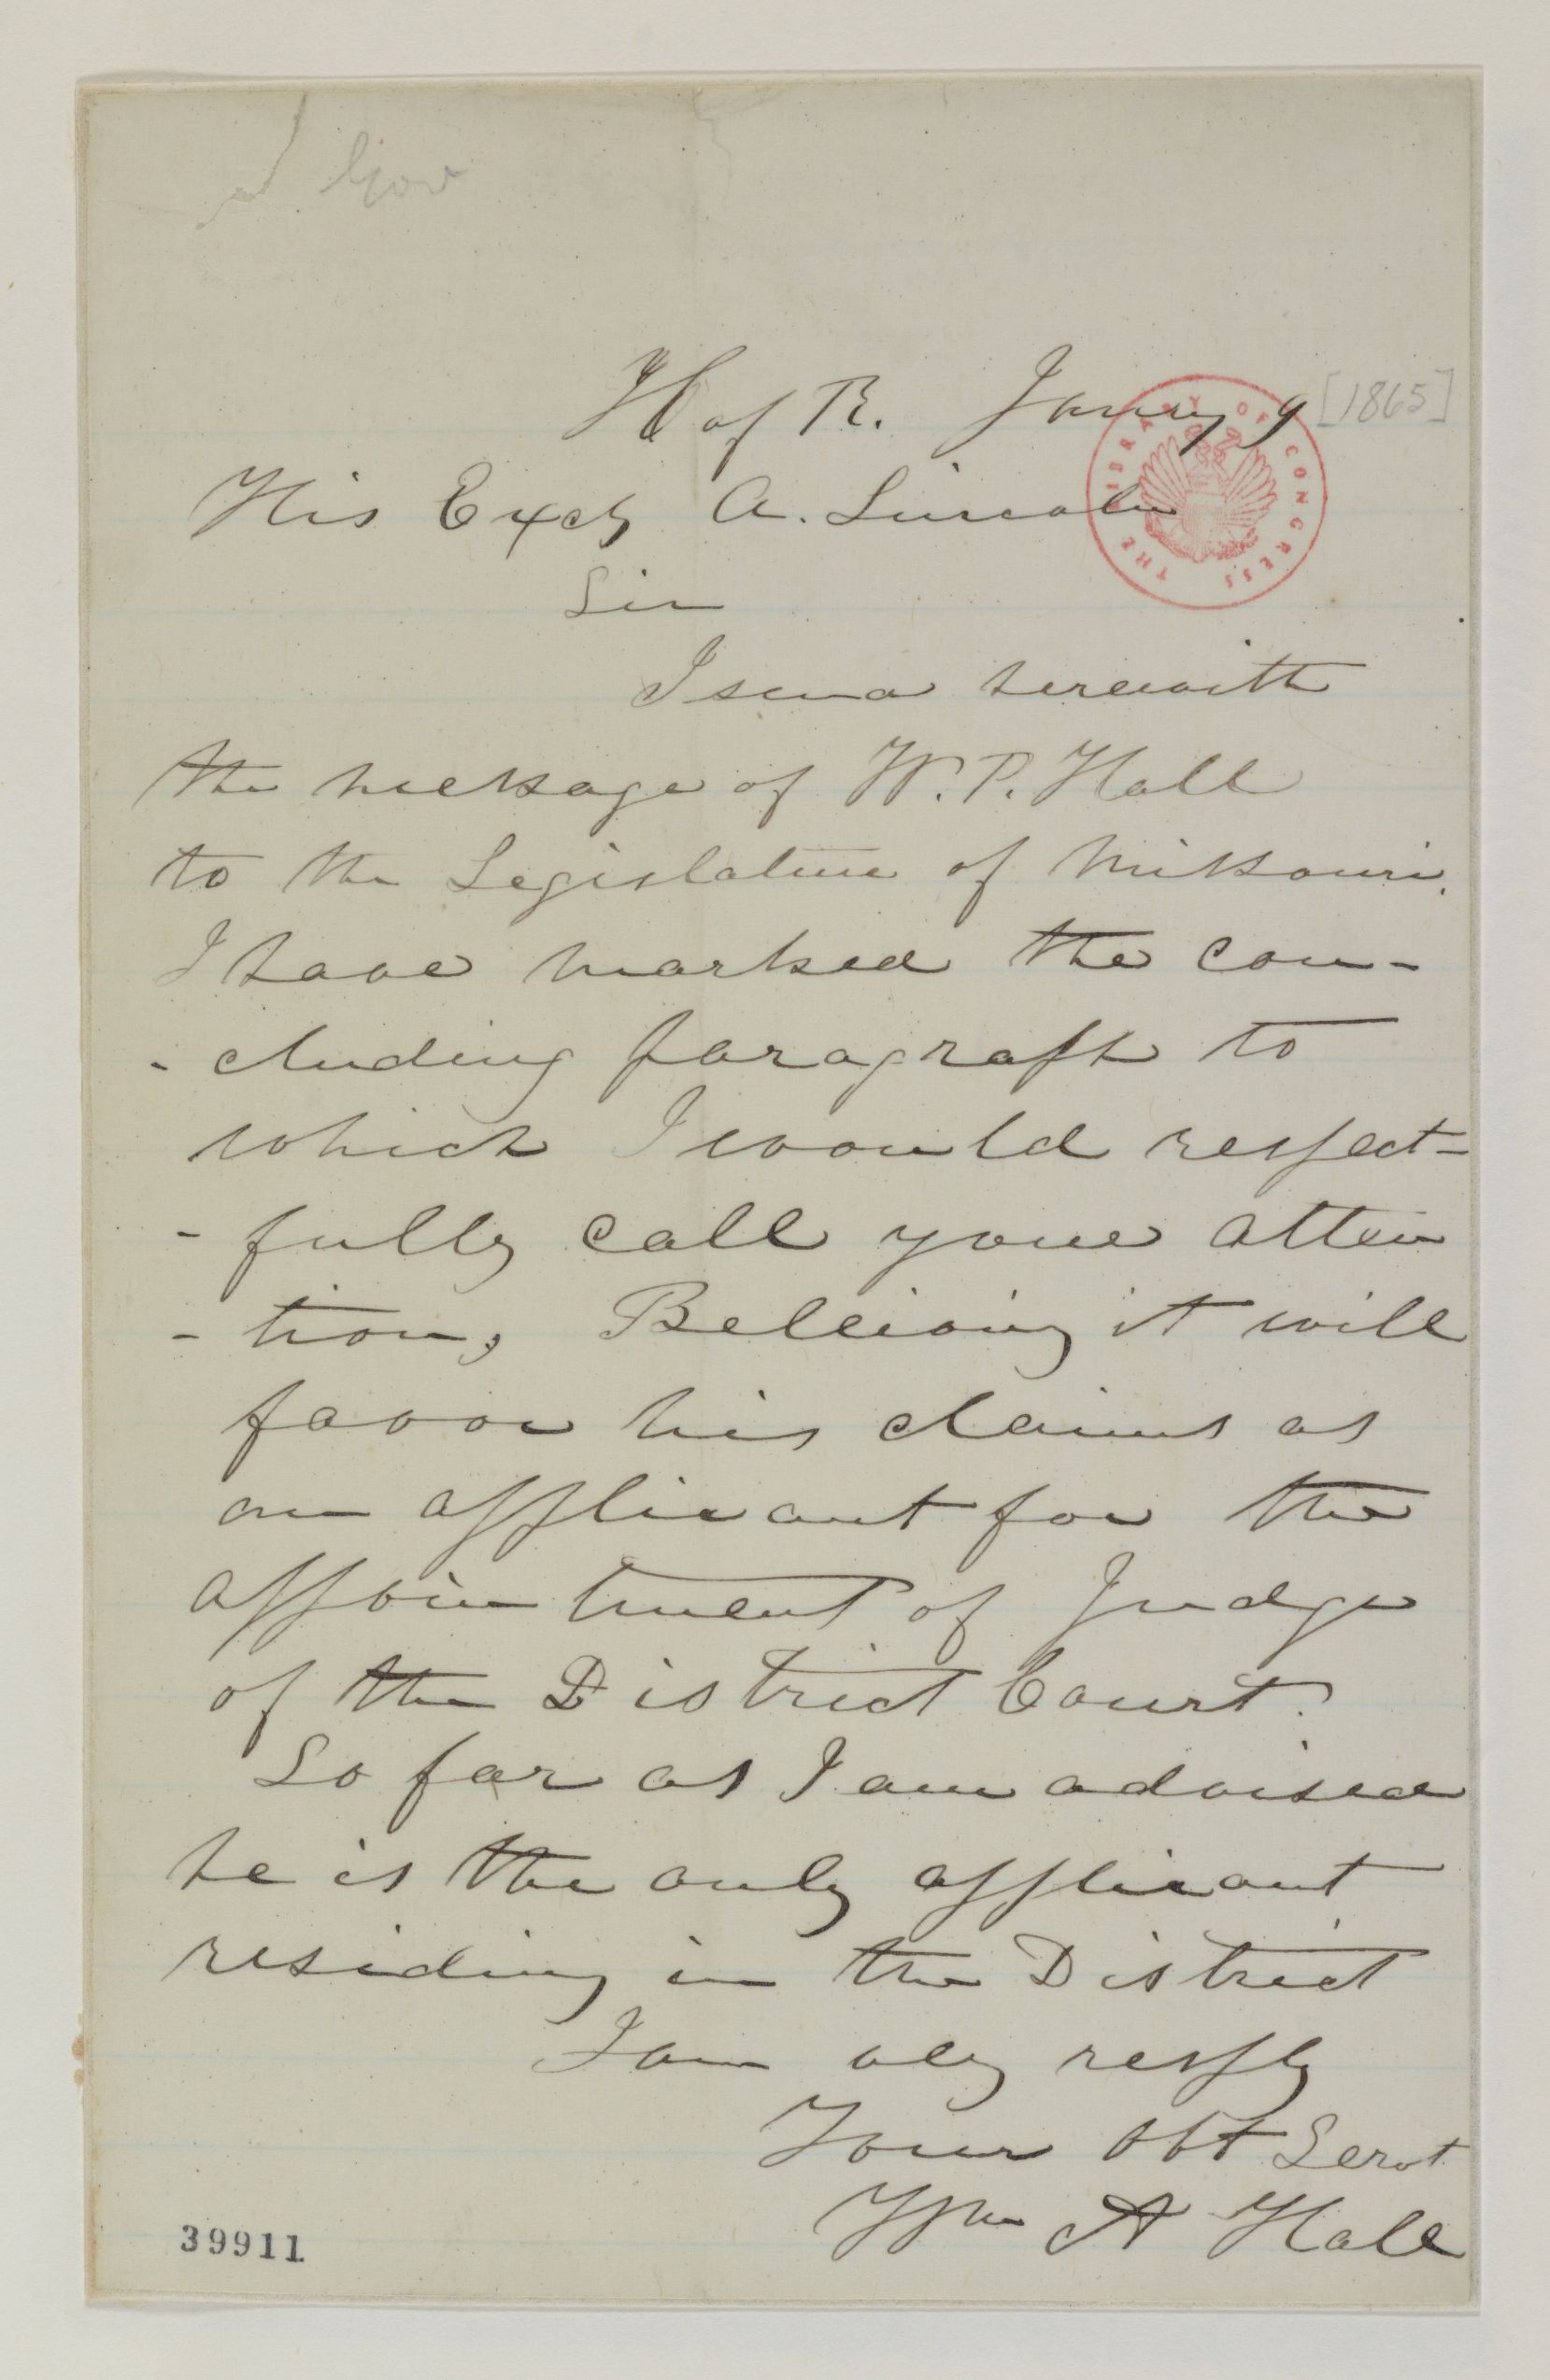 Gov
H of R. Janry 9 [1865]
THE LIBRARY OF CONGRESS
His Excy A. Lincoln
Sir
I send herewith
the message of W. P. Hall
to the Legislature of Missouri.
I have marked the con-
-cluding paragraph to
which I would respect-
-fully call your atten
-tion, Believing it will
favor his claims as
an applicant for the
appointment of Judge
of the District Court.
So far as I am advised
he is the only applicant
residing in the District
I am vey respfly
Your obt Servt
Wm A Hall
39911